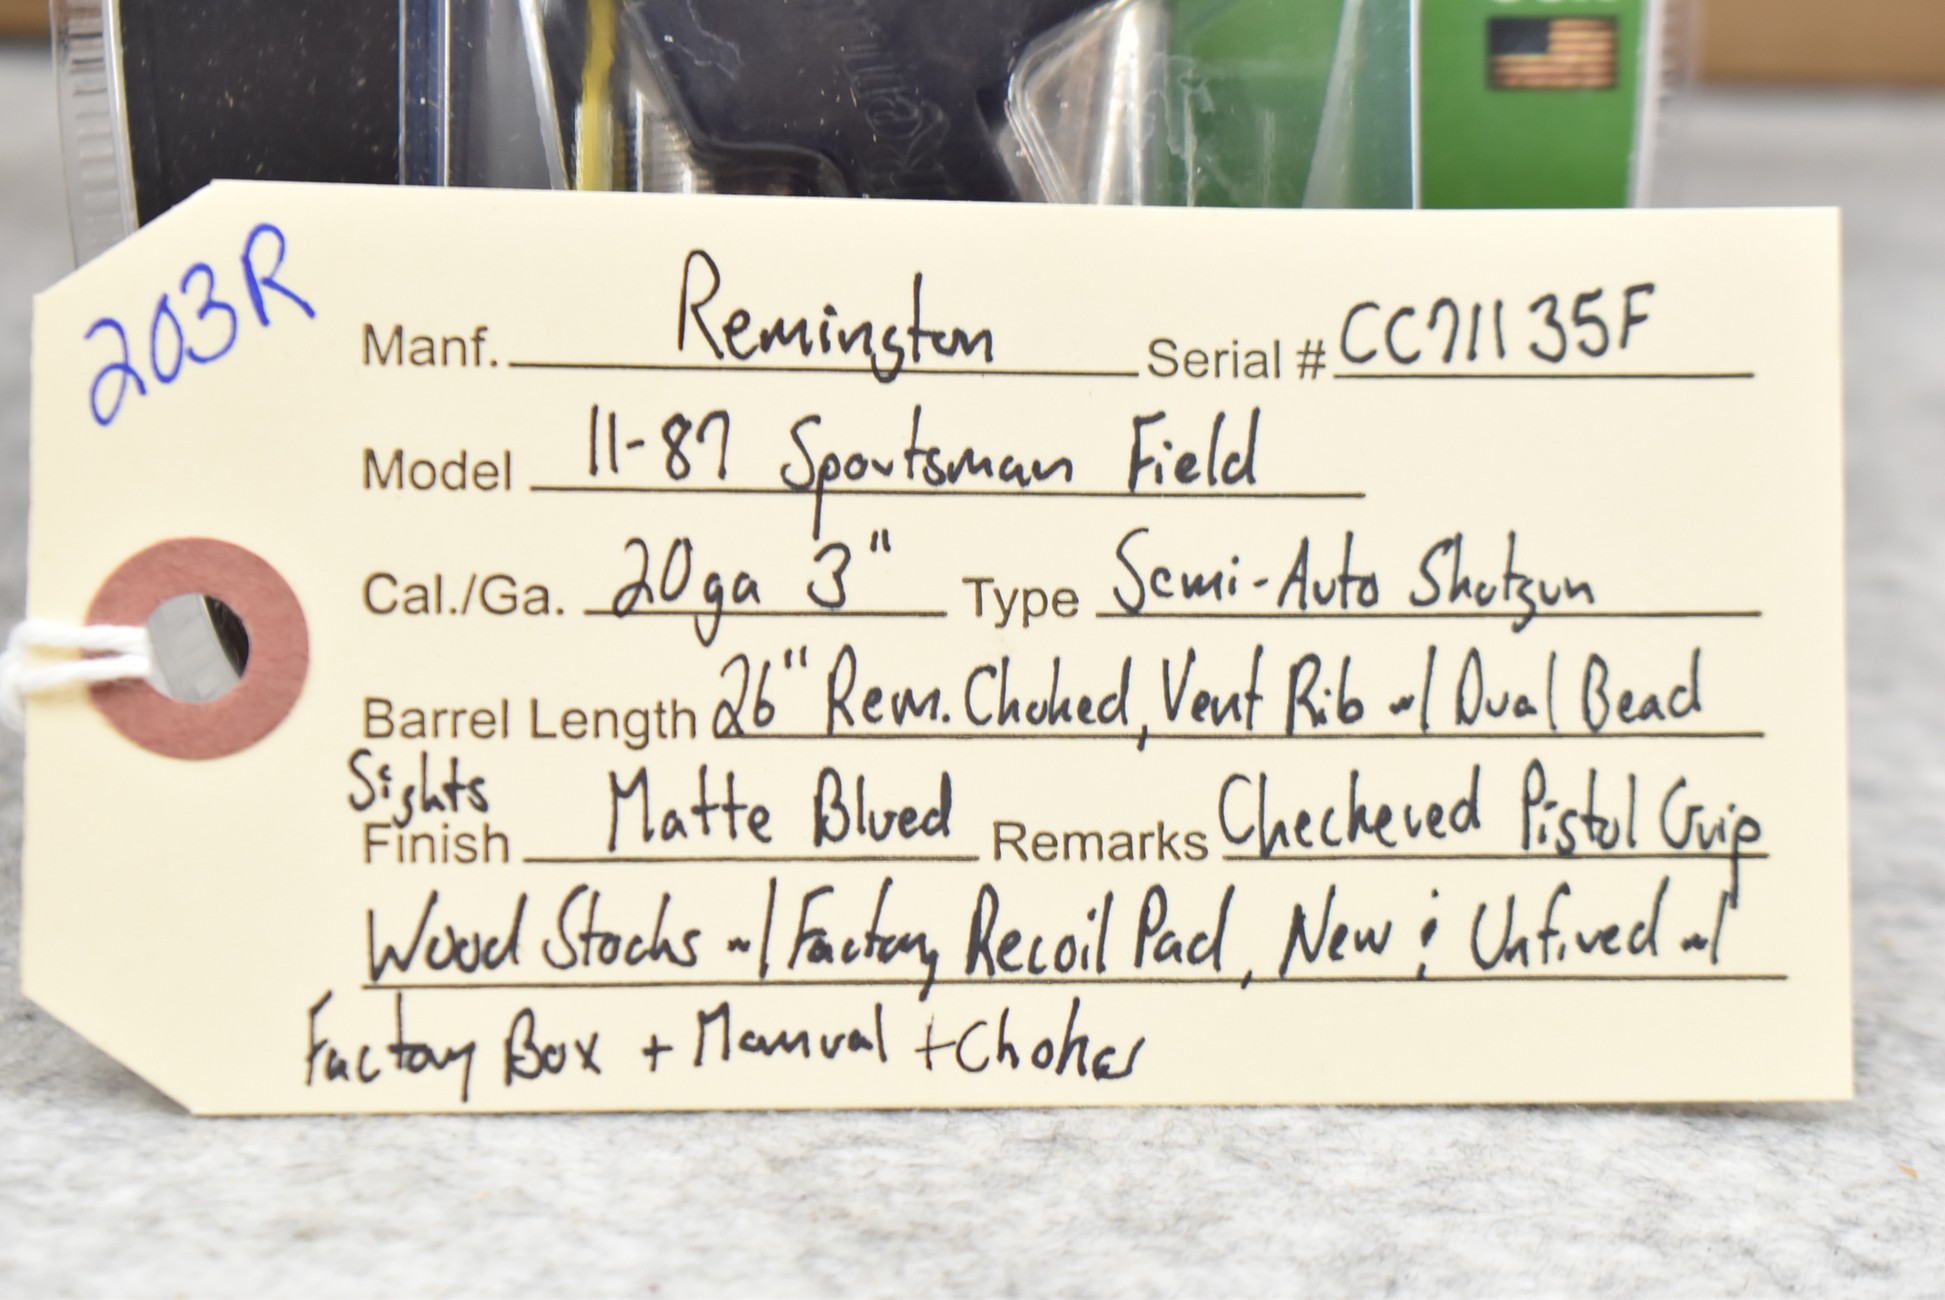 203R
Manf. Remington Serial # CC71135F
Model 11-87 Sportsman Field
Cal./Ga. 20ga 3" Type Semi-Auto Shotgun
Barrel Length 26" Rem. Choked, Vent Rib w/ Dual Bead
Sights
Finish Matte Blued Remarks Checkered Pistol Grip
Wood Stocks w/ Factory Recoil Pad, New & Unfired w/
Factory Box + Manual + Chokes